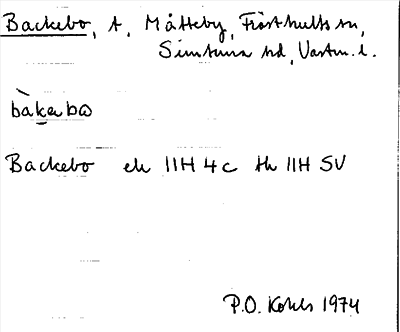 Backebo, t. Målteby, Frösthults sn,
Simtuna hd, Vastm. l.
bàkebω
Backebo ek 11H 4c th 11H SV
P.O. Kohls 1974